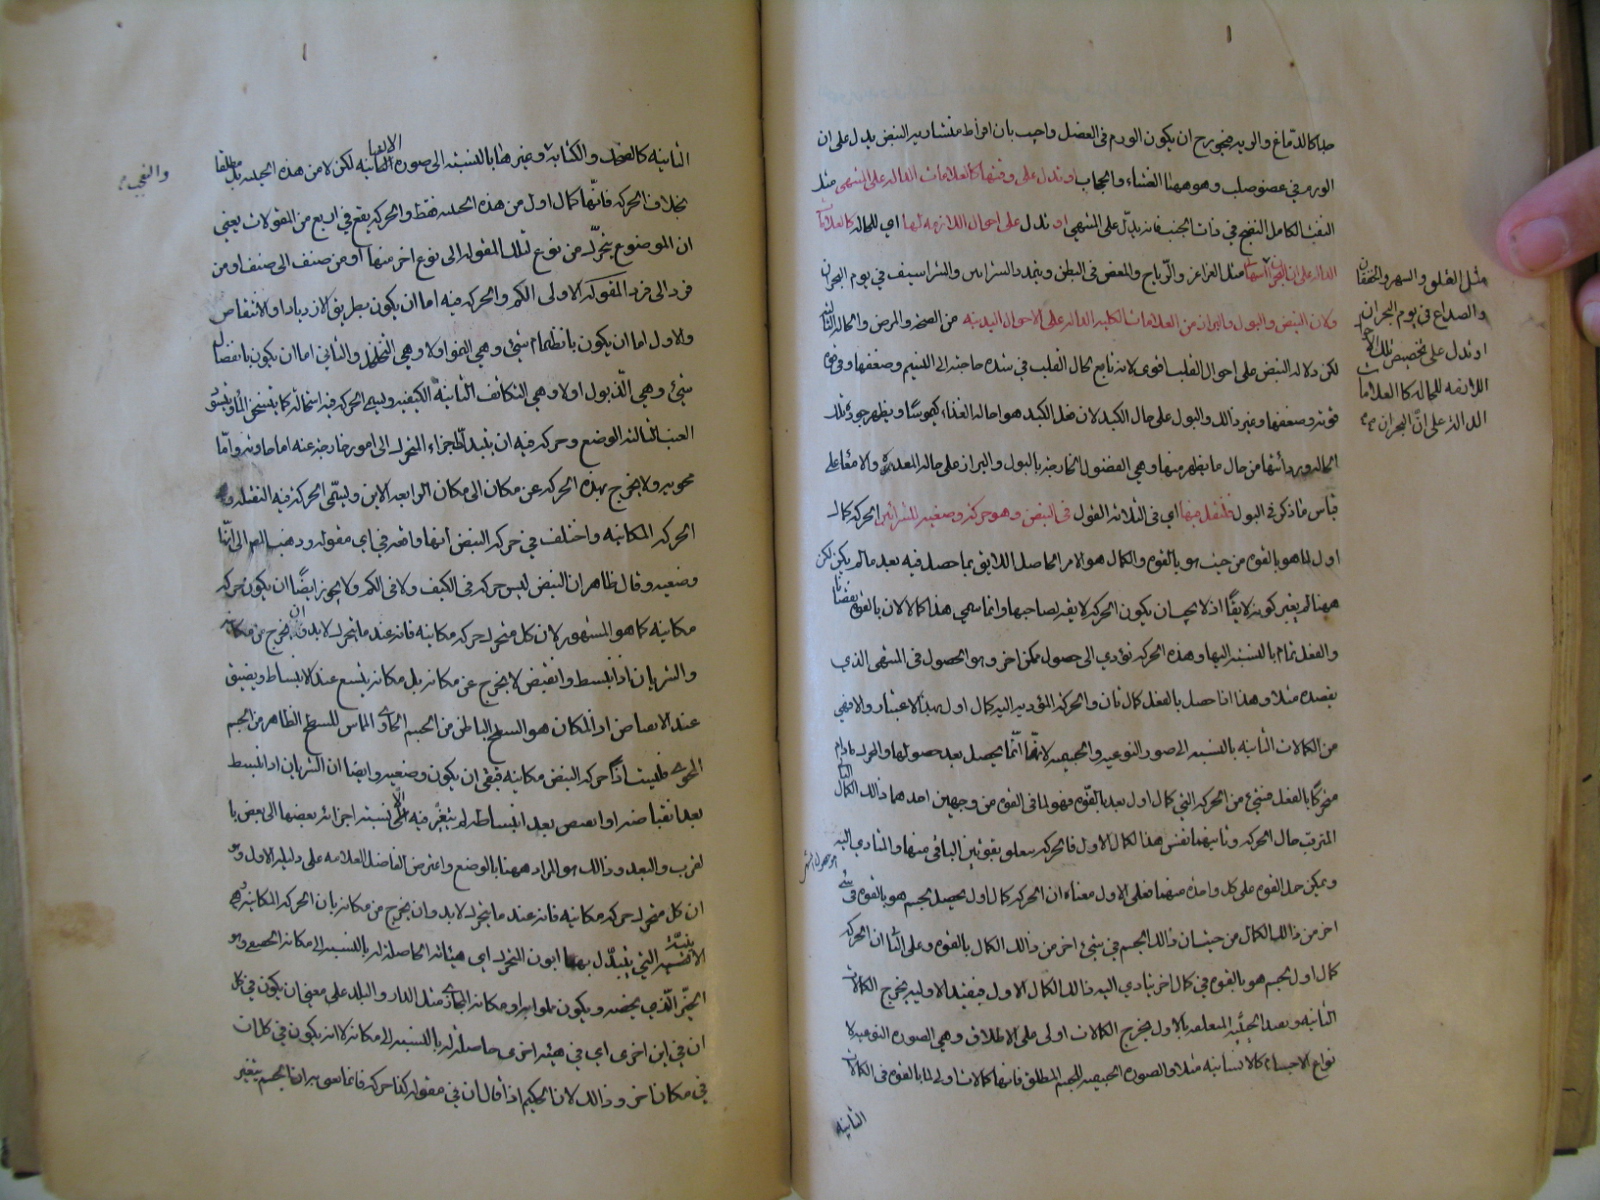 صلبا كالدماغ والرية فيجوز ح ان يكون الورم في العضل واجيب بان افراط منشارية النبض يدل على ان
الورم في عضو صلب وهو ههنا الغشاء والحجاب او تدل على وقتها كالعلامات الدالة على المنتهى مثل
النفث الكامل النضج في ذات الجنب فانه يدل على المنتهى او تدل على احوال اللازمة لها اي للحالة كالعلامات
الدالة على ان البحران اسهالى مثل القراقر والرياح والمغص في البطن وتمدد الشراسيف في يوم البحران
ولان النبض والبول والبراز من العلامات الكلية الدالة على الاحوال البدنية من الصحة والمرض والحالة الثالثة
لكن دلالة النبض على احوال القلب اقوى لانه تابع لحال القلب في شدة حاجته الى النسيم وضعفها وفي
قوته وضعفها وغير ذلك والبول على حال الكبد لان فعل الكبد هو احالة الغذاء كيموسا ويظهر جودة تلك
الحالة وردائتها من حال ما يظهر منها وهي الفضول الخارجة بالبول والبراز على حالة المعدة والامعاء على
قياس ما ذكر في البول فلنقل فيها اي في الثلاثة القول في النبض وهو حركة وضعية للشرائين الحركة كمال
اول لما هو بالقوة من حيث هو بالقوة والكمال هو الامر الحاصل اللايق بما حصل فيه بعد ما لم يكن لكن
ههنا لم يعتبر كونه لايقا اذ لا يجب ان يكون الحركة لايقة لصاحبها وانما سمي هذا كمالا لان بالقوة نقصانا
والفعل تمام بالنسبة اليها وهذه الحركة تؤدي الى حصول ممكن اخر وهو الحصول في المنتهى الذي
يقصده مثلا وهذا اذا حصل بالفعل كمال ثان والحركة المؤدية اليه كمال اول بهذا الاعتبار والا فهي
من الكمالات الثانية بالنسبة الى صور النوعية والجسمية لانها انما يحصل بعد حصولها والمتحرك ما دام
متحركا بالفعل فشئ من الحركة التي كمال اول بعد بالقوة فهو لما في القوة من وجهين احدهما ذلك الكمال الثاني
المترتب حال الحركة وثانيهما نفس هذا الكمال الاول فالحركة متعلق بقوتين الباقي منها والمتادي اليه
ويمكن حمل القوة على كل واحدة منهما فعلى الاول معناه ان الحركة كمال اول يحصل لجسم هو بالقوة في شئ
اخر من ذلك الكمال من حيث ان ذلك الجسم في شئ اخر من ذلك الكمال بالقوة وعلى الثاني ان الحركة
كمال اول لجسم هو بالقوة في كمال اخر يتادي اليه ذلك الكمال الاول فبقيد الاولية يخرج الكمالات
الثانية وبقيد الحيثية المتعلقة بالاول يخرج الكمالات اولى على الاطلاق وهي الصورة النوعية لا
نواع الاجسام كالانسانية مثلا والصورة الجسمية للجسم المطلق فانها كمالات اولى لما بالقوة في الكمالات
الثانية
مثل الغلق والسهر والخفقان
والصداع في يوم البحران
او تدل على تخصيص تلك
اللازمة للحالة كالعلامات
الدالة على ان البحران
الثانية كالضحك والكتابة وغيرهما بالنسبة الى صورة الانسانية لكن لا من هذه الحيثية بل مطلقا
بخلاف الحركة فانها كمال اول من هذه الحيثية فقط والحركة يقع في اربع من المقولات يعني
ان الموضوع يتحرك من نوع لتلك المقولة الى نوع اخر منها او من صنف الى صنف او من
فرد الى فرد المقولة الاولى الكم والحركة فيه اما ان يكون بطريق الازدياد او الانتقاص
والاول اما ان يكون بانظمام شئ وهي النمو او لا وهي التخلخل والثاني اما ان يكون بانفصال
شئ وهي الذبول او لا وهي التكاثف الثانية الكيف ويسمى الحركة فيه استحالة كما يتسخن الماء ويتسود
العنب الثالثة الوضع وحركة فيه ان يتبدل اجزاء المتحرك الى امور خارجة عنه اما حاوية واما
محوية ولا يخرج بهذه الحركة عن مكان الى مكان الرابعة الاين ويسمى الحركة فيه النقلة و
الحركة المكانية واختلف في حركة النبض انها واقعة في اي مقولة وذهب المص الى انها
وضعية وقال ظاهر ان النبض ليس حركة في الكيف ولا في الكم ولا يجوز ايضا ان يكون حركة
مكانية كما هو المشهور لان كل متحرك حركة مكانية فانه عند ما يتحرك لا بد ان يخرج من مكانه
والشريان اذا انبسط وانقبض لا يخرج عن مكانه بل مكانه يتسع عند الانبساط ويضيق
عند الانقباض اذ المكان هو السطح الباطن من الجسم الحاوي المماس للسطح الظاهر من الجسم
المحوي فليست اذا حركة النبض مكانية فبقي ان يكون وضعية وايضا ان الشريان اذا انبسط
بعد انقباضه او انقبض بعد انبساطه لم يتغير فيه الا نسبة اجزائه بعضها الى بعض با
لقرب والبعد وذلك هو المراد ههنا بالوضع واعترض الفاضل العلامة على دليله الاول وهو
ان كل متحرك حركة مكانية فانه عند ما يتحرك لا بد وان يخرج من مكانه بان الحركة المكانية هي
الاينية التي يتبدل بها اين المتحرك اي هيئاته الحاصلة له بالنسبة الى مكانه الحقيقي وهو
الحيز الذي يخصه ويكون مملوا به او مكانه المجازي مثل الدار والبلد على معنى ان يكون في كل
ان في اين اخرى اي في هيئة اخرى حاصلة له بالنسبة الى مكانه لا انه يكون في كل ان
في مكان اخر وذلك لان الحكيم اذا قال ان في مقولة كذا حركة فانما يعنى به ان الجسم يتغير